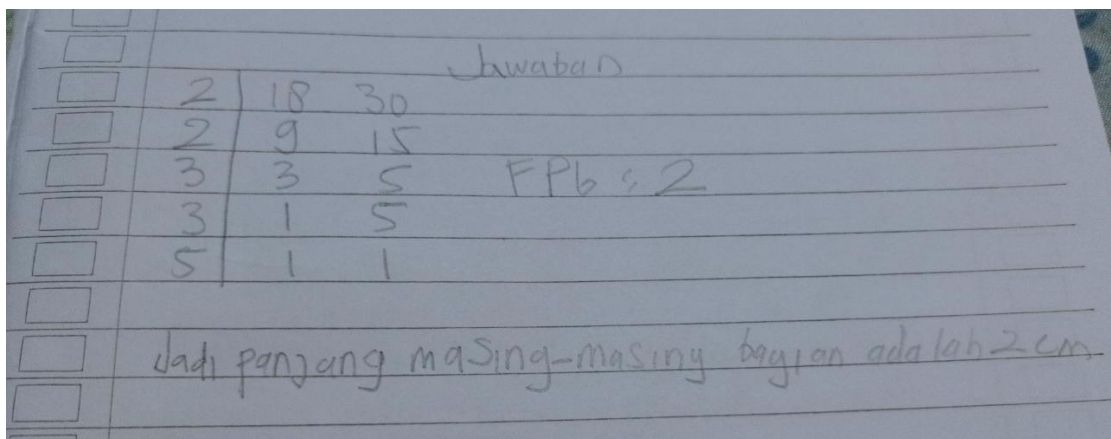 Jawaban
2 | 18 30
2 | 9 15
3 | 3 5 FPb : 2
3 | 1 5
5 | 1 1
Jadi panjang masing-masing bagian adalah 2 cm